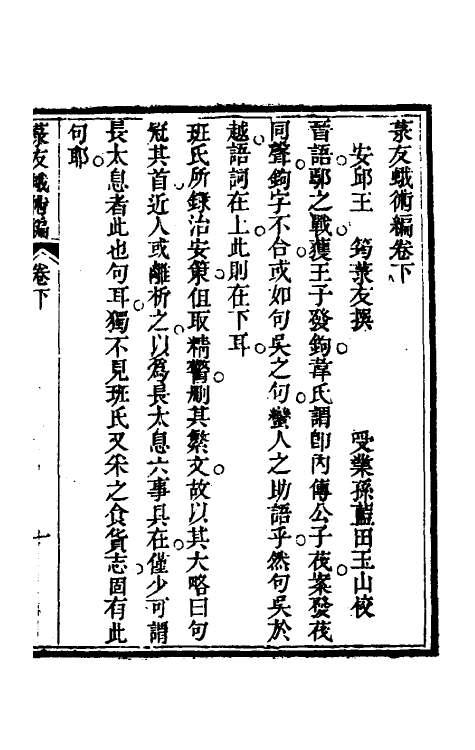 菉友蛾術編卷下
安邱王　筠菉友撰　受業孫藍田玉山校
晉語鄢之戰獲王子發鉤韋氏謂卽內傳公子茷案發茷
同聲鉤字不合或如句吳之句蠻人之助語乎然句吳於
越語詞在上此則在下耳
班氏所錄治安策但取精警刪其繁文故以其大略曰句
冠其首近人或離析之以爲長太息六事具在僅少可謂
長太息者此也句耳獨不見班氏又采之食貨志固有此
句耶
菉友蛾術編　卷下　七